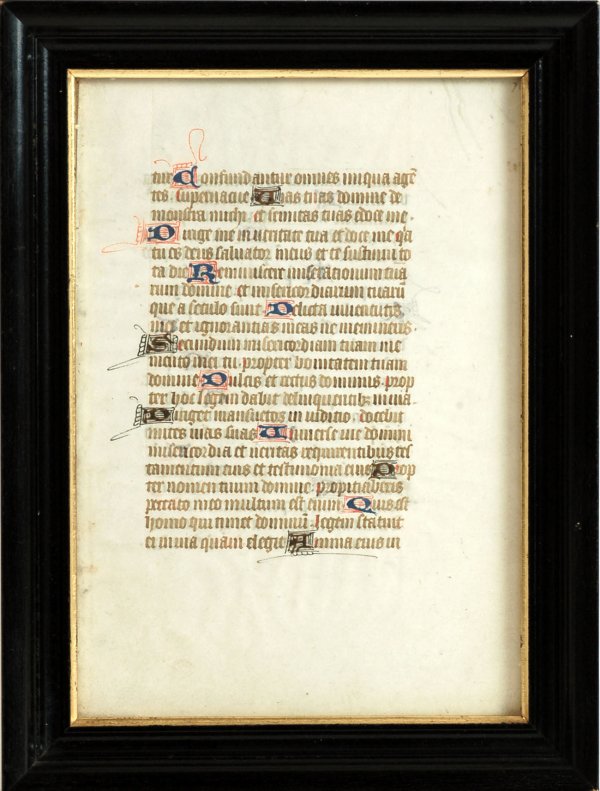 tur Confundantur omnes iniqua agẽ
tes supervacue Uias tuas domine de
monstra michi et semitas tuas edoce me
Dirige me in veritate tua et doce me qr̃a
tu es deus salvator meus et te sustinui to
ta die Reminiscere miserationum tua
rum domine et misericordiarum tuarũ
que a seculo sunt Delicta iuventutis
mee et ignorantias meas ne memineris
Secundum misericordiam tuam me
mento mei tu propter bonitatem tuam
domine Dulcis et rectus dominus prop
ter hoc legem dabit delinquentibz in via
Diriget mansuetos in iuditio docebit
mites vias suas Universe vie domini
misericordia et veritas requirentibus tes
tamentum eius et testimonia eius Prop
ter nomen tuum domine propitiaberis
peccato meo multum est enim Quis est
homo qui timet dominũ legem statuit
ei in via quam elegit Anima eius in